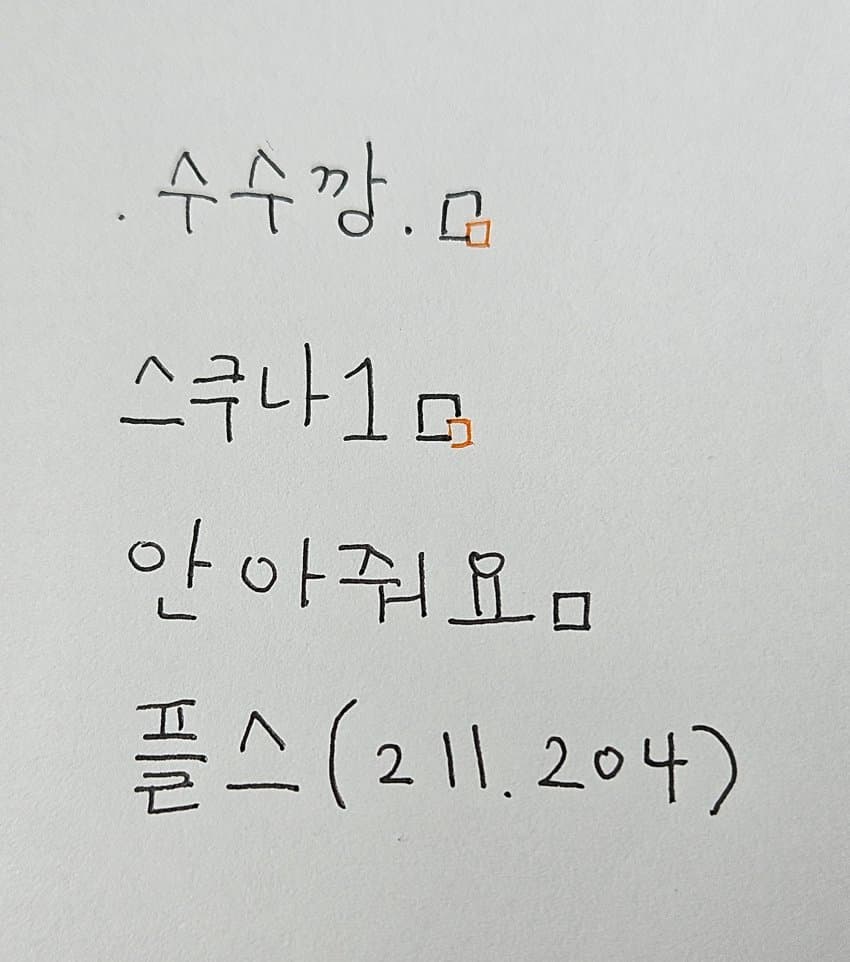 .수수깡.
스쿠나1
안아줘요
플스(211.204)